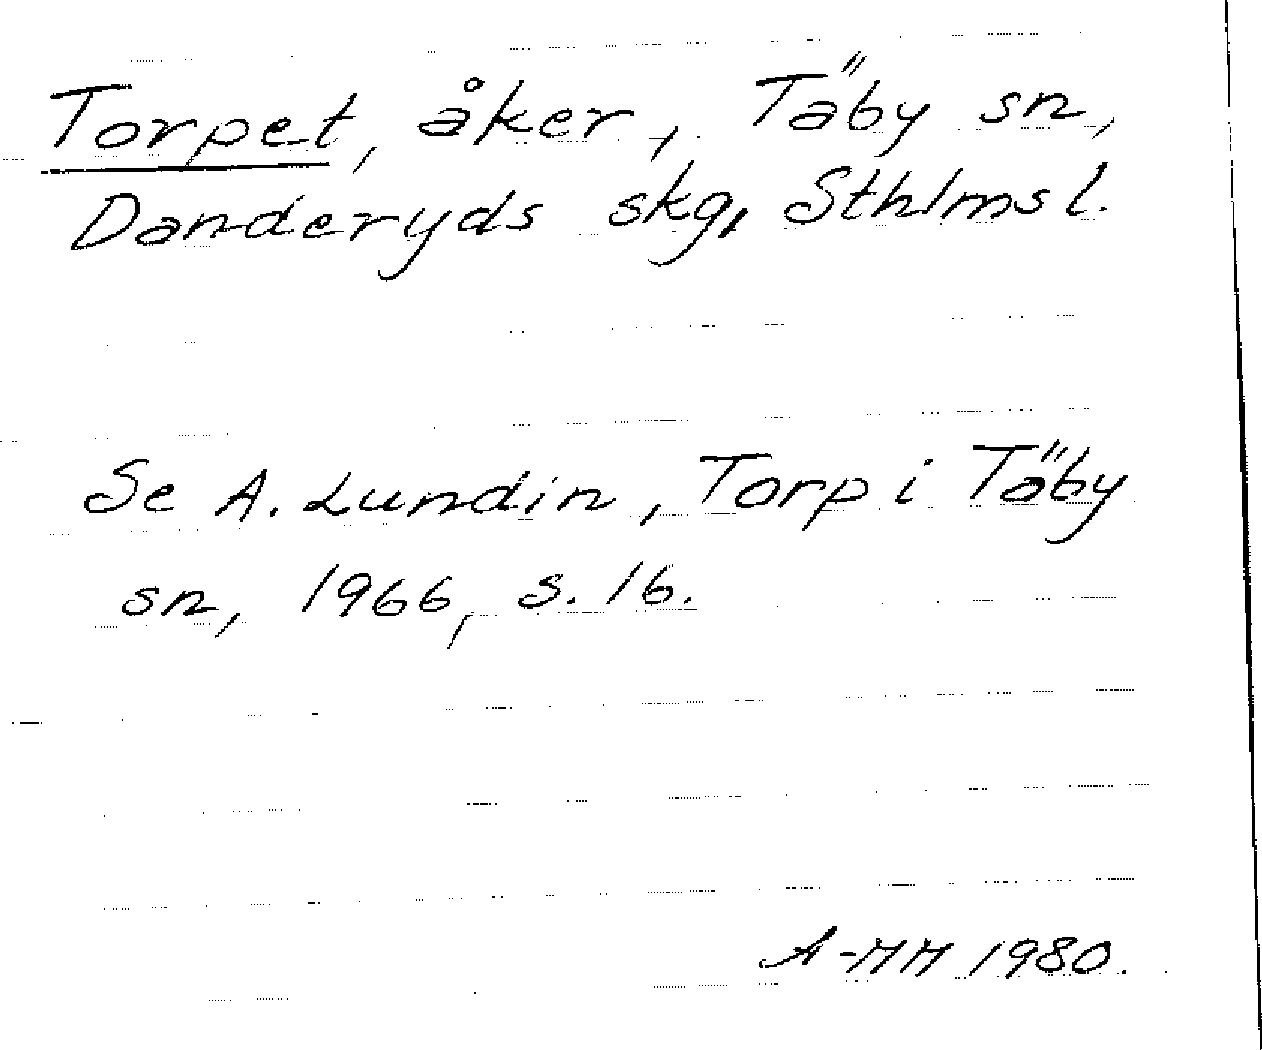 Torpet, åker, Täby sn,
Danderyds skg, Sthlms l.
Se A. Lundin, Torp i Täby
sn, 1966, s. 16.
A-HH 1980.